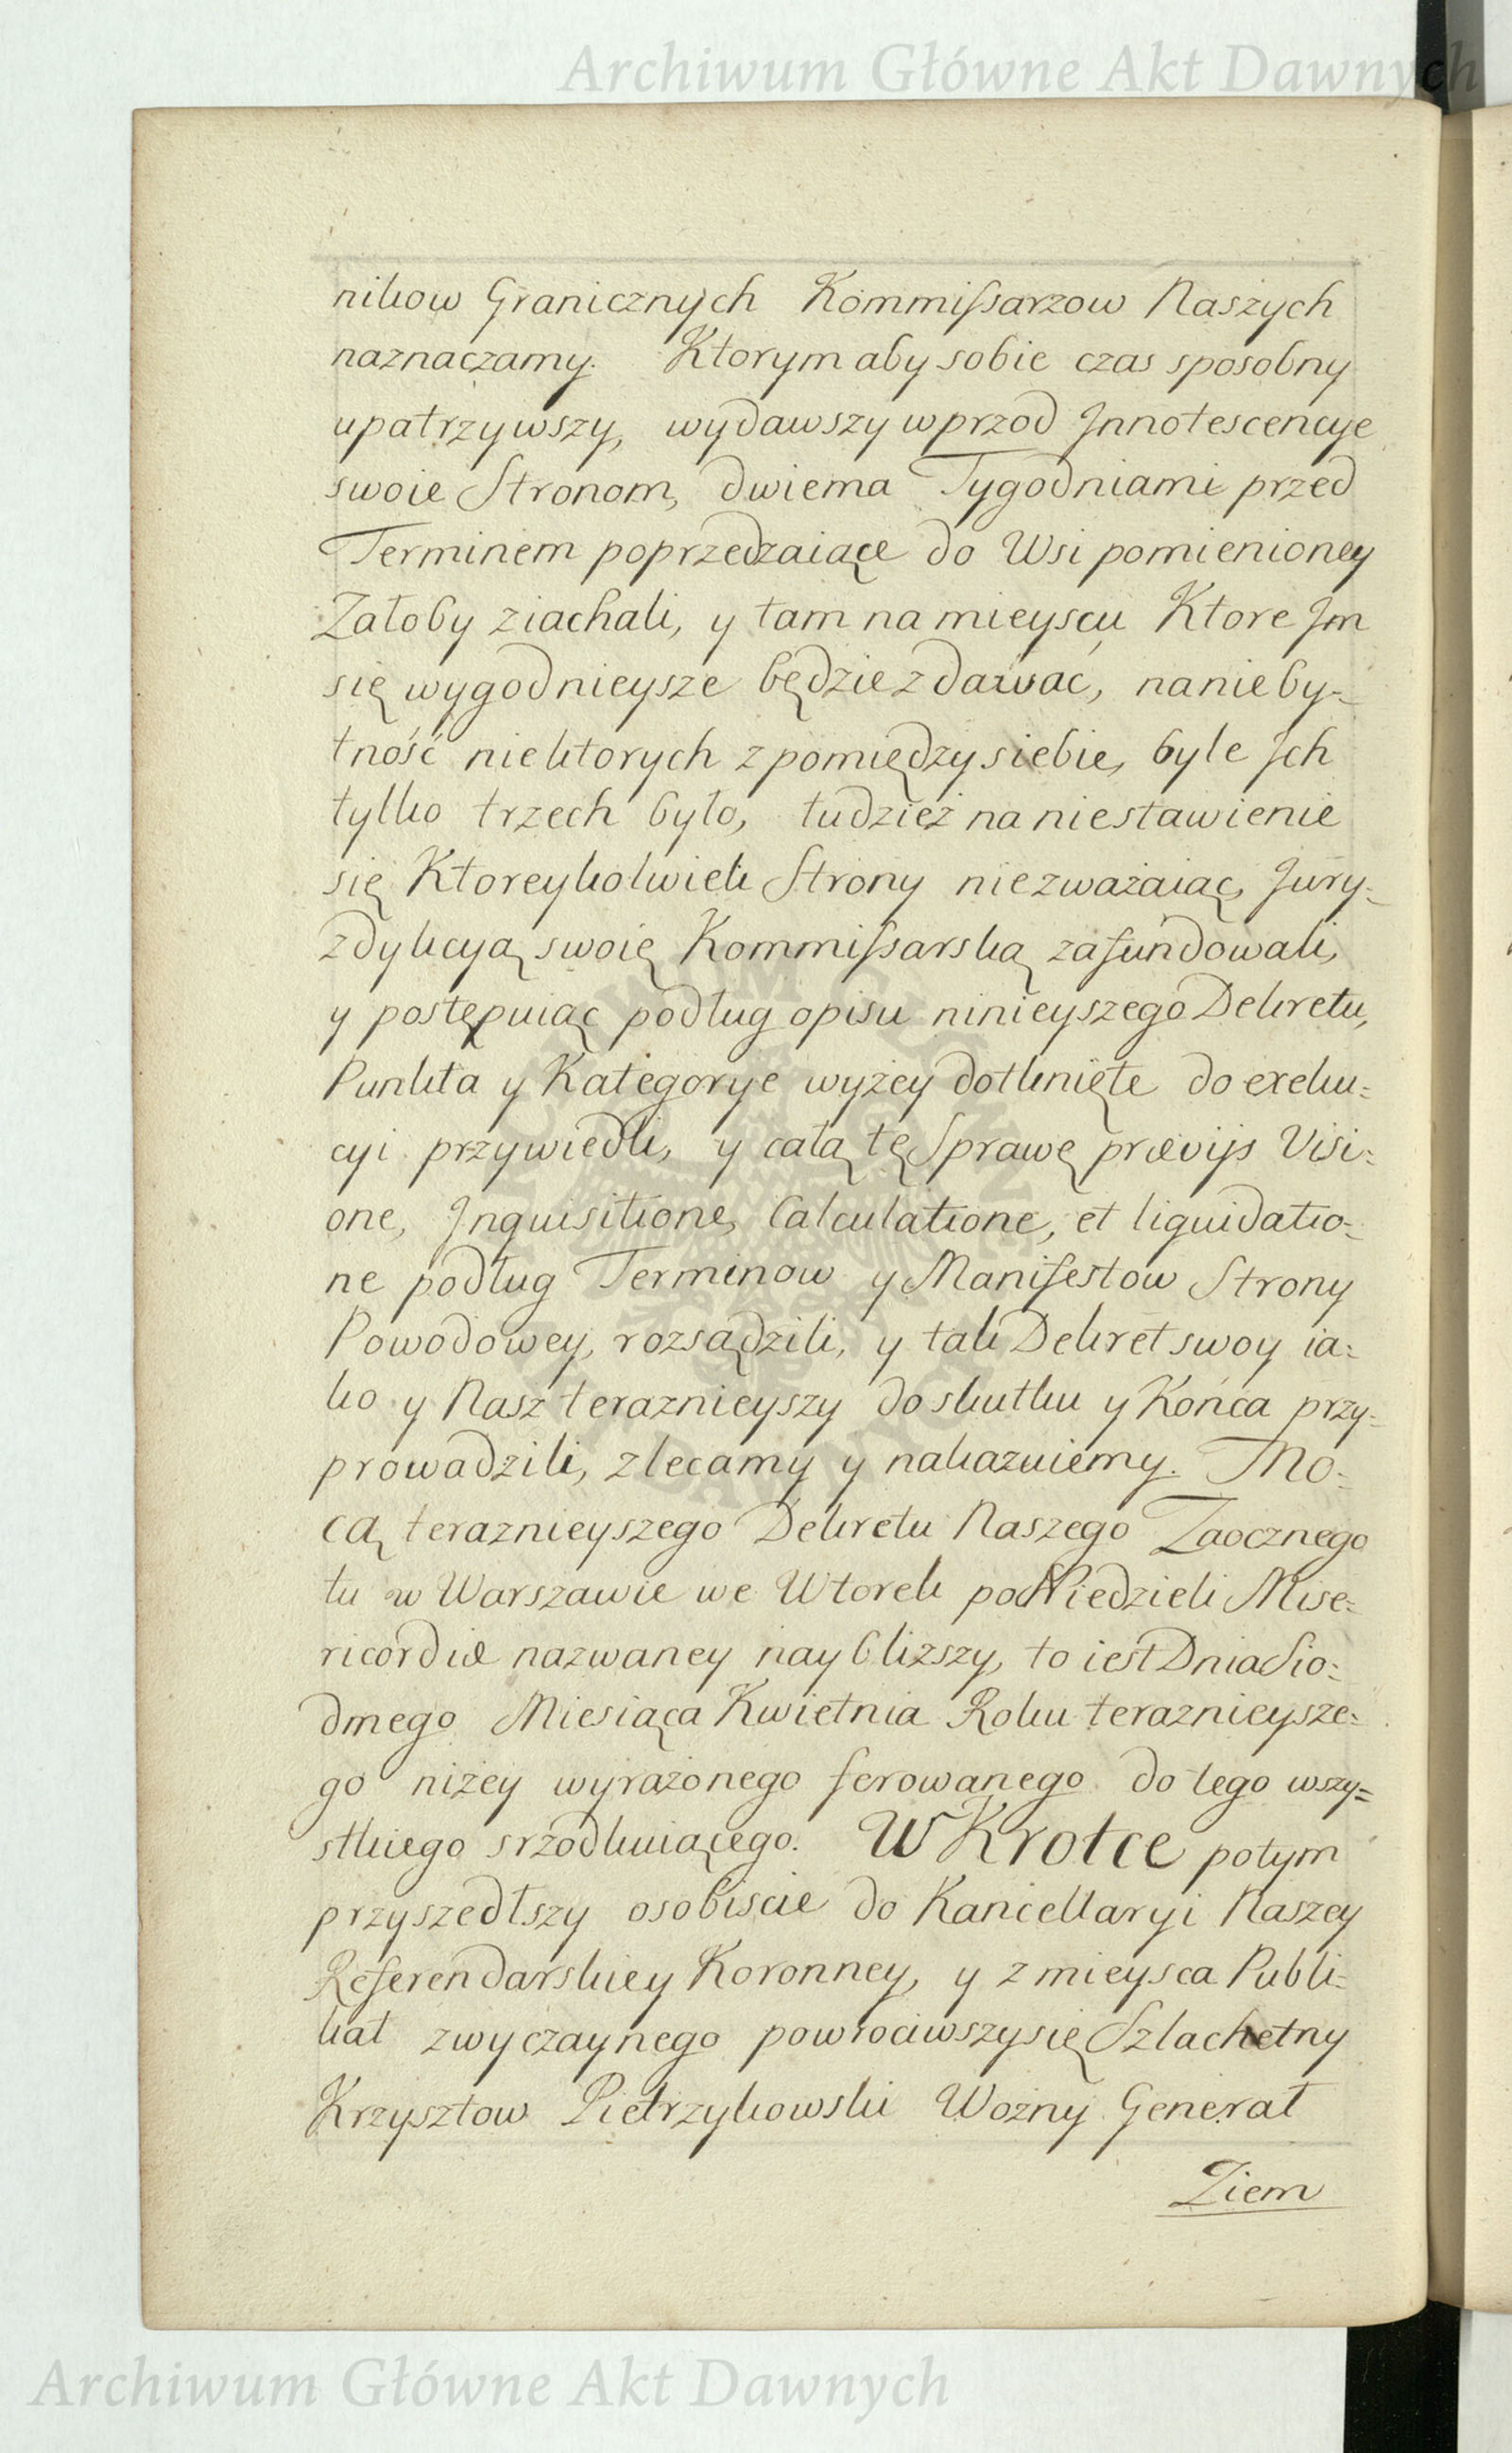 Archiwum Główne Akt Dawnych
nikow Granicznych Kommiſsarzow Naszych
naznaczamy. Ktorym aby sobie czas sposobny
upatrzywszy, wydawszy wprzod Innotescencye
swoie Stronom, dwiema Tygodniami przed
Terminem poprzedzaiące do Wsi pomienioney
Załoby ziachali, y tam na mieyscu Ktore Jm
się wygodnieysze będzie zdawać, na nieby-
tność niektorych z pomiędzy siebie, byle Jch
tylko trzech było, tudzież na niestawienie
się Ktoreykolwiek Strony niezważaiąc, Jury-
zdykcyą swoię Kommiſsarską zafundowali,
y postępuiąc podług opisu ninieyszego Dekretu,
Punkta y Kategorye wyżey dotknięte do exeku-
cyi przywiedli, y całą tę Sprawę prævijs Visi-
one, Jnquisitione, Calculatione, et liquidatio-
ne podług Terminow y Manifestow Strony
Powodowey, rozsądzili, y tak Dekret swoy ia-
ko y Nasz teraznieyszy do skutku y Końca przy-
prowadzili, zlecamy y nakazuiemy. Mo-
cą teraznieyszego Dekretu Naszego Zaocznego
tu w Warszawie we Wtorek po Niedzieli Mise-
ricordiæ nazwaney naybliższy, to iest Dnia Sio-
dmego Miesiąca Kwietnia Roku teraznieysze-
go niżey wyrażonego ferowanego do tego wszy-
stkiego srzodkuiącego. W Krotce potym
przyszedłszy osobiscie do Kancellaryi Naszey
Referendarskiey Koronney, y z mieysca Publi-
kat zwyczaynego powrociwszy się Szlachetny
Krzysztow Pietrzykowski Woźny Generał
Ziem
Archiwum Główne Akt Dawnych